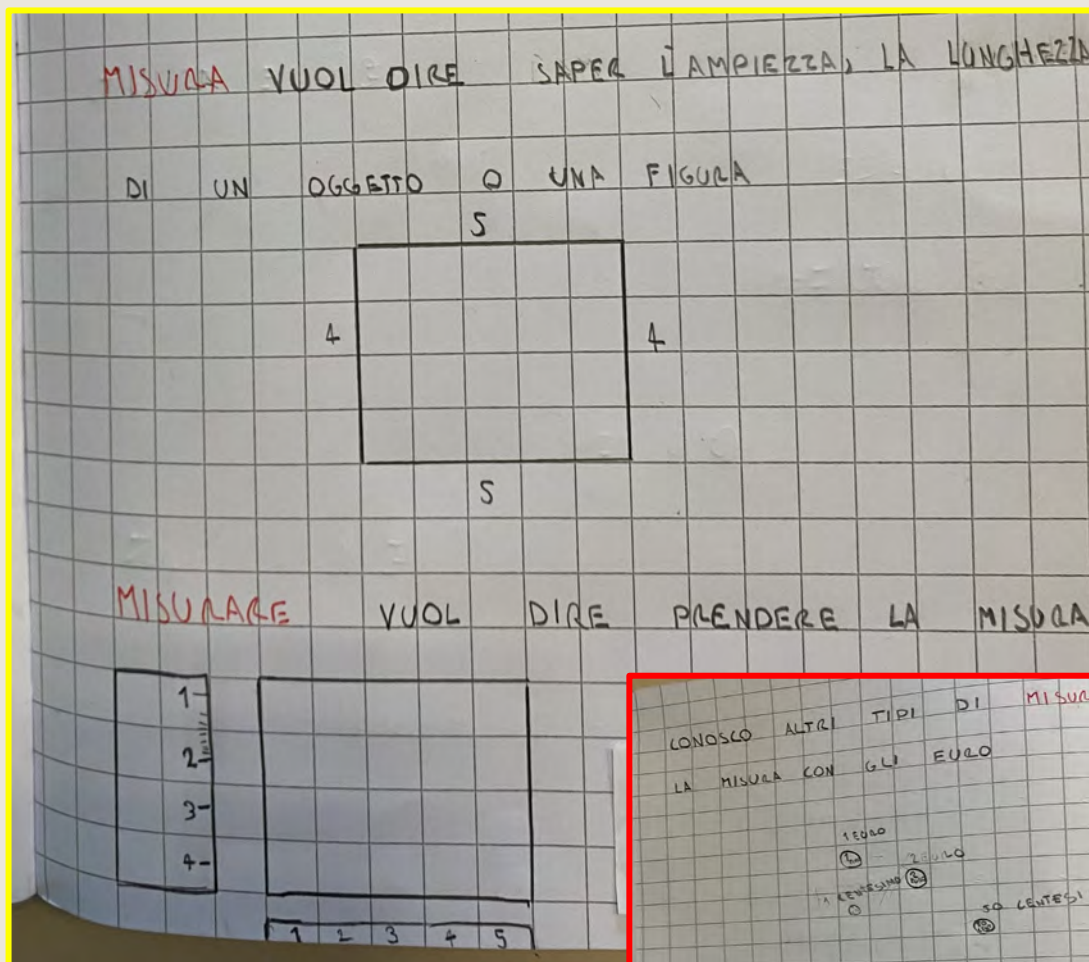 MISURA VUOL DIRE SAPER L'AMPIEZZA, LA LUNGHEZZA
DI UN OGGETTO O UNA FIGURA
5
4 4
5
MISURARE VUOL DIRE PRENDERE LA MISURA
1
2
3
4
1 2 3 4 5
CONOSCO ALTRI TIPI DI MISUR
LA MISURA CON GLI EURO
1 EURO
2 EURO
1 CENTESIMO
50 CENTESI